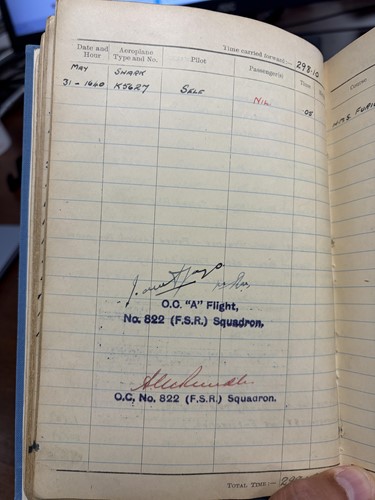 Time carried forward:— 298·10
Date and Hour Aeroplane Type and No. Pilot Passenger(s) Time Course
MAY SHARK
31 - 1640 K5627 SELF NIL ·05
H.M.S.
O.C. "A" Flight,
No. 822 (F.S.R.) Squadron,
O.C, No. 822 (F.S.R.) Squadron.
TOTAL TIME:—